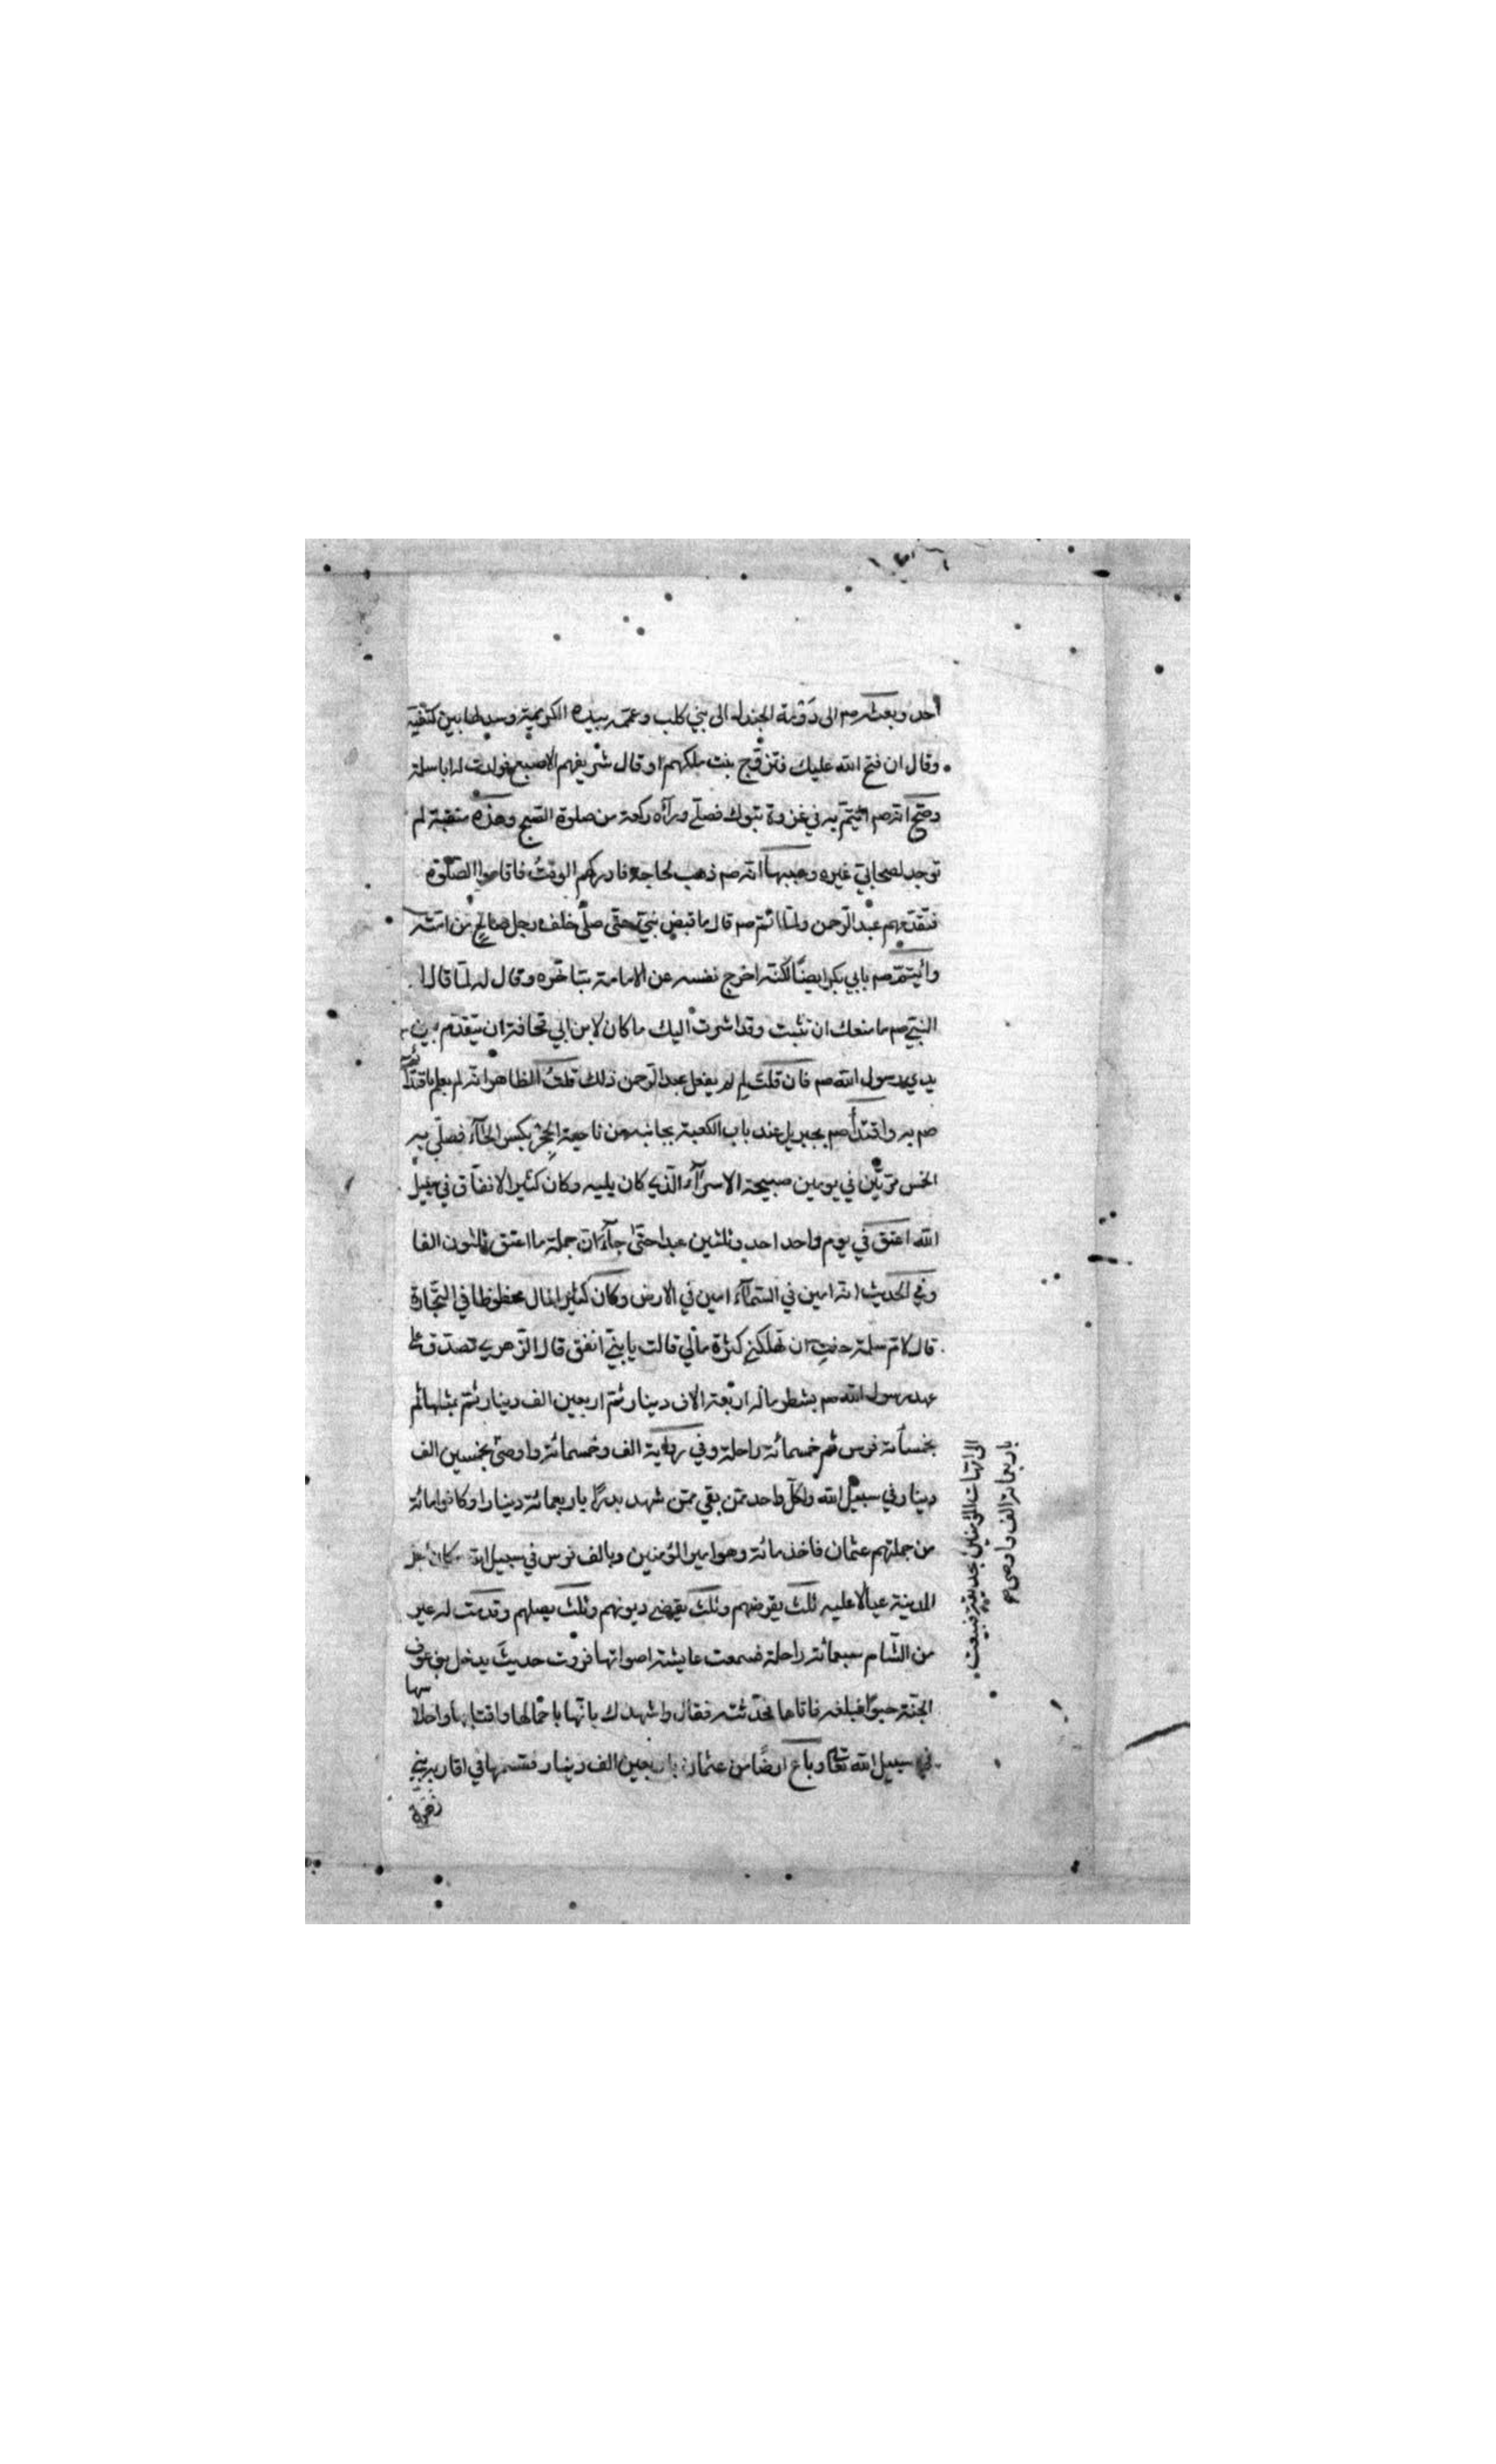 احد وبعثه صم الى دَوْمة الجندل الى بني كلب وعممه بيده الكريمة وسدلها بين كتفيه
وقال ان فتح الله عليك فتزوّج بنت ملكهم او قال شريفهم الاصبغ فولدت له ابا سلمة
وصحّ انه صم ائيتمّ به في غزوة تبوك فصلّى ورآءه ركعة من صلوة الصّبح وهذه منقبة لم
توجد لصحابيّ غيره وسببها انه صم ذهب لحاجة فادركهم الوقتُ فاقاموا الصّلوة
فتقدّمهم عبد الرّحمن ولمّا ائتم صم قال ما قبض نبيّ حتّى صلّى خلف رجل صالح من امّته
وائيتمّ صم بابي بكر ايضًا لكنّه اخرج نفسه عن الامامة بتأخّره وقال له لمّا قال
النبيّ صم ما منعك ان تثبت وقد اشرت اليك ما كان لابن ابي قحافة ان يتقدّم بين
يدي رسول الله صم فان قلت لم لم يفعل عبد الرّحمن ذلك قلتُ الظاهر انه لم يعلم باقتدائه
صم به واقتدأ صم بجبريل عند باب الكعبة بجانبه من ناحية الحِجْر بكسر الحآء فصلّى به
الخمس مرّتين في يومين صبيحة الاسرآء الّذي كان يليه وكان كثير الانفاق في سبيل
الله اعتق في يوم واحد احد وثلثين عبدا حتّى جآء انّ جملة ما اعتق ثلثون الفا
وفي الحديث انه امين في السّمآء امين في الارض وكان كثير المال محظوظا في التّجارة
قال لامّ سلمة خفت ان تهلكني كثرة مالي قالت يا بنيّ انفق قال الزّهري تصدّق على
عهد رسول الله صم بشطر ماله اربعة الاف دينار ثم اربعين الف دينار ثم بمثلها ثم
بخمسأئة فرس ثم خمسمائة راحلة وفي رواية الف وخمسمائة واوصى بخمسين الف
دينار في سبيل الله ولكلّ واحد ممّن بقي ممّن شهد بدرًا باربعمائة دينار وكانوا مائة
من جملتهم عثمان فاخذ مائة وهو امير المؤمنين وبالف فرس في سبيل الله كان اهل
المدينة عيالا عليه ثلث يقرضهم وثلث يقضي ديونهم وثلث يصلهم وقدمت له عير
من الشّام سبعمائة راحلة فسمعت عايشة اصواتها فروت حديث يدخل بن عوف
الجنّة حبوًا فبلغه فاتاها فحدّثته فقال واشهدك بانّها باحمالها واقتابها واحلاسها
في سبيل الله تعالى وباع ارضًا من عثمان باربعين الف دينار فقسمها في اقاربه بني
زهرة
الى امّهات المؤمنين بحديقة فبيعت
باربعمائة الف واوصى